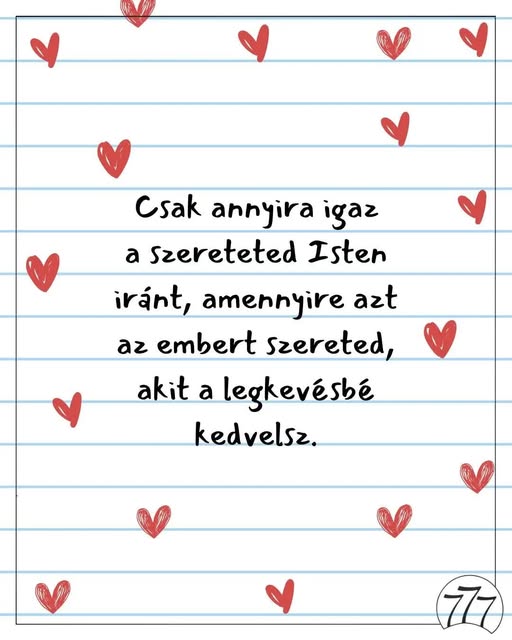 Csak annyira igaz
a szereteted Isten
iránt, amennyire azt
az embert szereted,
akit a legkevésbé
kedvelsz.
777